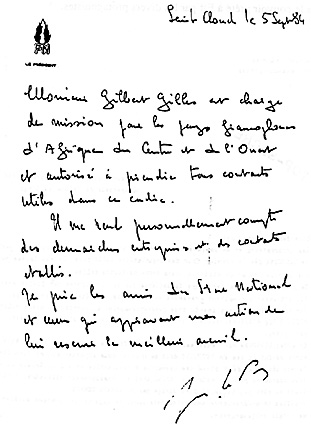 Saint Cloud le 5 Sept 84
FN
LE PRÉSIDENT
Monsieur Gilbert Gilles est chargé
de mission pour les pays francophones
d'Afrique du Centre et de l'Ouest
et autorisé à prendre tous contacts
utiles dans ce cadre.
Il me rend personnellement compte
des démarches entreprises et des contacts
établis.
Je prie les amis du Front National
et ceux qui approuvent mon action de
lui réserver le meilleur accueil.